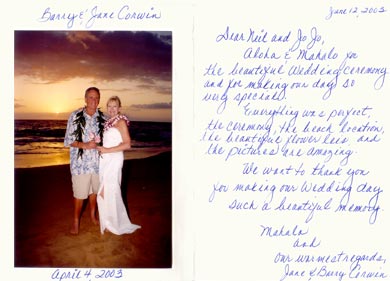 Barry & Jane Corwin
April 4, 2003
June 12, 2003
Dear Neil and Jo Jo,
Aloha & Mahalo for
the beautiful Wedding ceremony
and for making our day so
very special!
Everything was perfect,
the ceremony, the beach location,
the beautiful flower leis and
the pictures are amazing.
We want to thank you
for making our Wedding day
such a beautiful memory.
Mahalo
and
Our warmest regards,
Jane & Barry Corwin